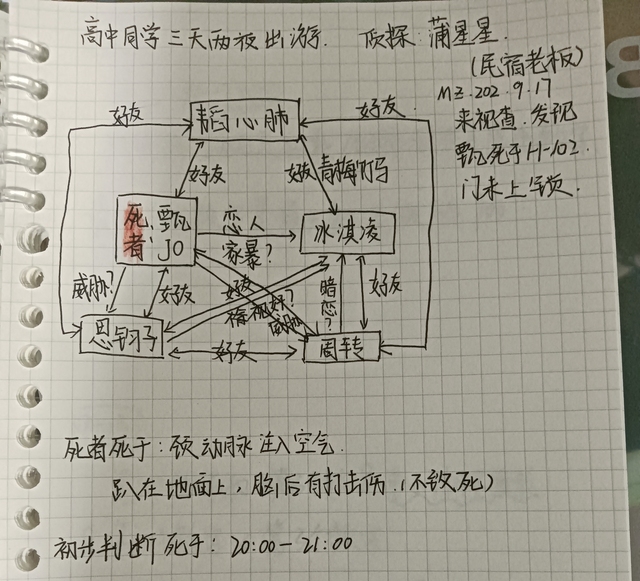 高中同学三天两夜出游. 侦探:蒲星星.
(民宿老板)
MZ.202.9.17
来视查.发现
甄死于H-102.
门未上锁.
好友
韬心肺
好友
好友
好友 青梅竹马
死者: 甄JO
恋人
家暴?
冰淇凌
威胁?
好友
好友
威胁
暗恋?
好友
恩钥子
好友
周转
死者死于:颈动脉注入空气.
趴在地面上,脑后有打击伤.(不致死)
初步判断死于:20:00-21:00